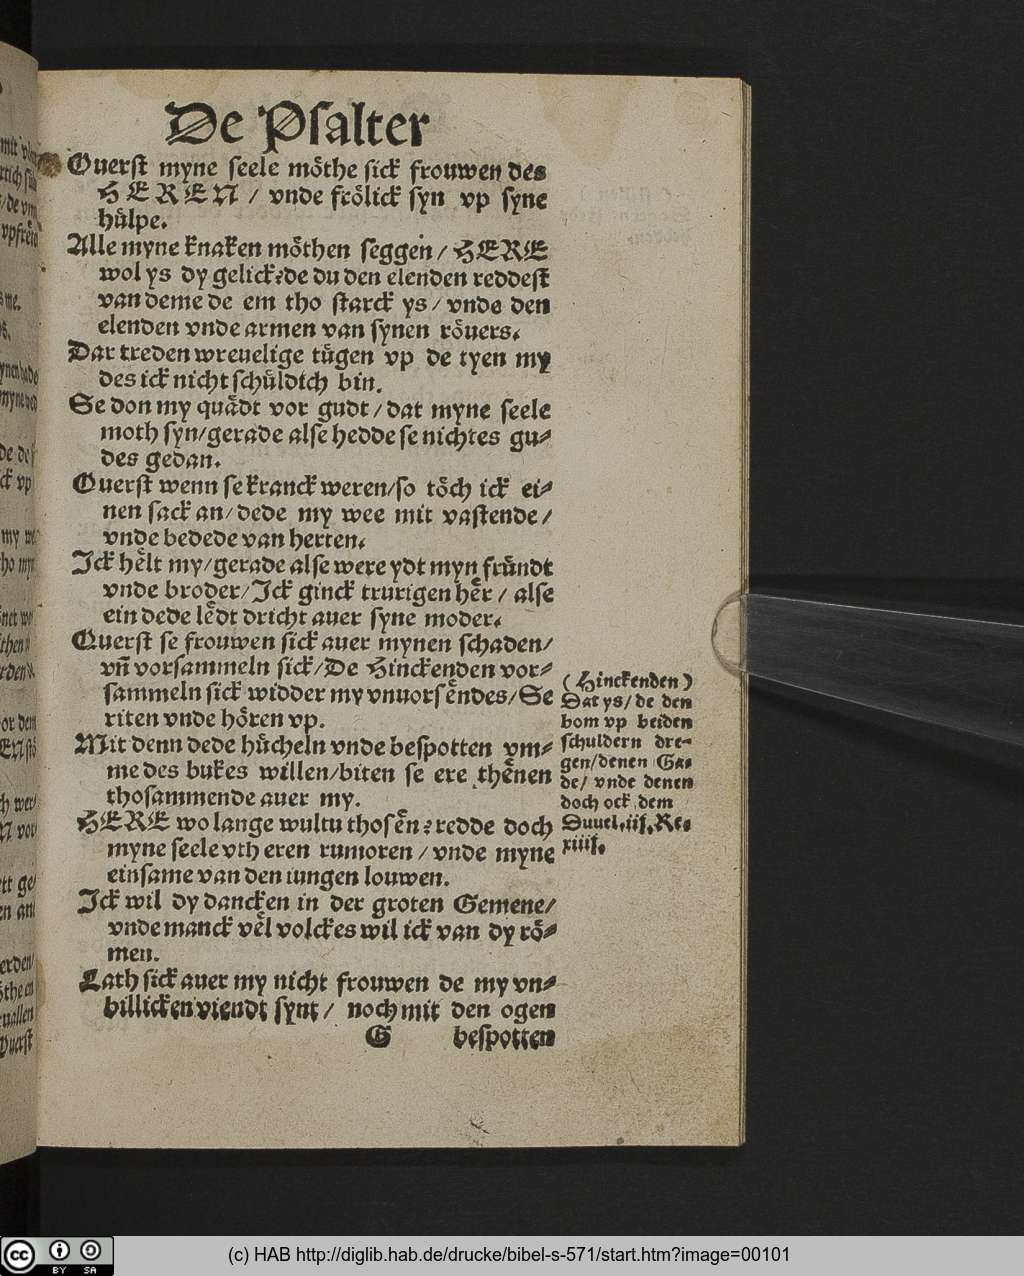 De Psalter
Ouerst myne seele mo̊the sick frouwen des
HEREN / vnde fro̊lick syn vp syne
hu̇lpe.
Alle myne knaken mo̊then seggen / HERE
wol ys dy gelick? de du den elenden reddest
van deme de em tho starck ys / vnde den
elenden vnde armen van synen ro̊uers.
Dar treden wreuelige tu̇gen vp de tyen my
des ick nicht schu̇ldich bin.
Se don my quådt vor gudt / dat myne seele
moth syn / gerade alse hedde se nichtes gu⸗
des gedan.
Ouerst wenn se kranck weren / so to̊ch ick ei⸗
nen sack an / dede my wee mit vastende /
vnde bedede van herten.
Ick he̊lt my / gerade alse were ydt myn fru̇ndt
vnde broder / Ick ginck trurigen he̊r / alse
ein dede le̊dt dricht auer syne moder.
Ouerst se frouwen sick auer mynen schaden /
vn̄ vorsammeln sick / De Hinckenden vor⸗
sammeln sick widder my vnuorse̊ndes / Se
riten vnde ho̊ren vp.
Mit denn dede hu̇cheln vnde bespotten vm⸗
me des bukes willen / biten se ere the̊nen
thosammende auer my.
HERE wo lange wultu those̊n? redde doch
myne seele vth eren rumoren / vnde myne
einsame van den iungen louwen.
Ick wil dy dancken in der groten Gemene /
vnde manck ve̊l volckes wil ick van dy ro̊⸗
men.
Lath sick auer my nicht frouwen de my vn⸗
billicken viendt synt / noch mit den ogen
G bespotten
(Hinckenden)
Dat ys / de den
bom vp beiden
schuldern dre⸗
gen / denen Ga⸗
de / vnde denen
doch ock dem
Duuel. iij. Re.
xiiij.
(c) HAB http://diglib.hab.de/drucke/bibel-s-571/start.htm?image=00101
cc BY SA